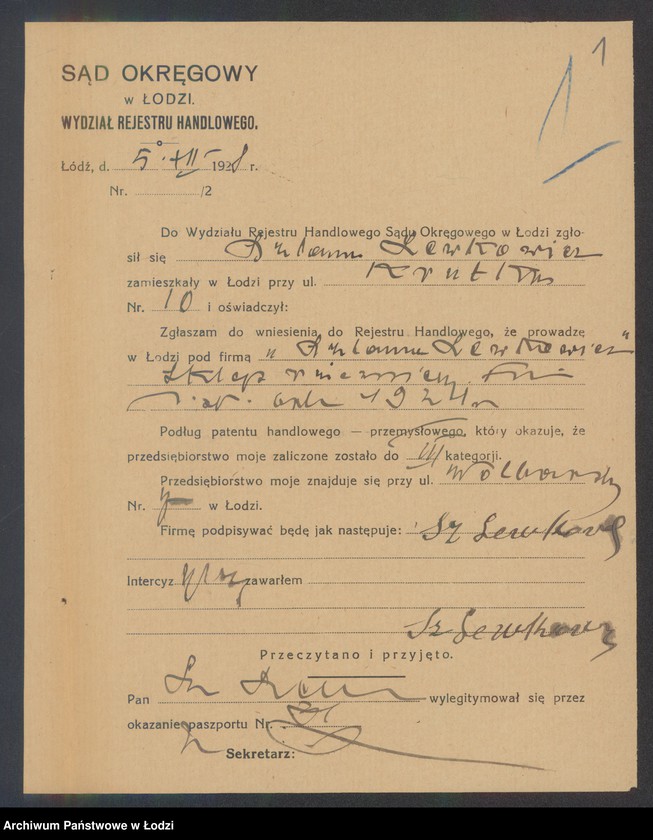 1
SĄD OKRĘGOWY
w ŁODZI.
WYDZIAŁ REJESTRU HANDLOWEGO.
Łódź, d. 5 XII 1928 r.
Nr. /2
Do Wydziału Rejestru Handlowego Sądu Okręgowego w Łodzi zgło-
sił się Szlama Lewkowicz
zamieszkały w Łodzi przy ul. Krutka
Nr. 10 i oświadczył:
Zgłaszam do wniesienia do Rejestru Handlowego, że prowadzę
w Łodzi pod firmą „Szlama Lewkowicz"
sklep
1924
Podług patentu handlowego — przemysłowego, który okazuje, że
przedsiębiorstwo moje zaliczone zostało do III kategorji.
Przedsiębiorstwo moje znajduje się przy ul. Wolborska
Nr. w Łodzi.
Firmę podpisywać będę jak następuje: Sz Lewkowicz
Intercyz zawarłem
Sz Lewkowicz
Przeczytano i przyjęto.
Pan wylegitymował się przez
okazanie paszportu Nr.
Sekretarz:
Archiwum Państwowe w Łodzi